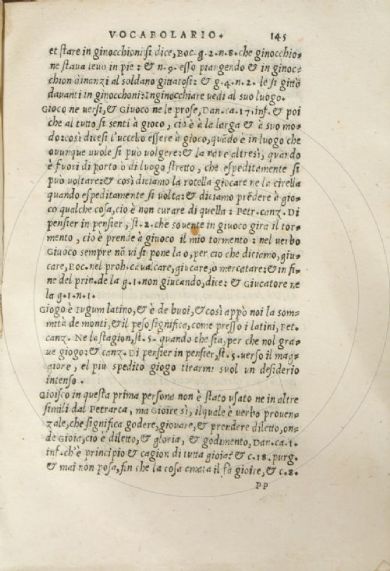 VOCABOLARIO. 145
et stare in ginocchioni si dice, BOC. g. 2. n. 8. che ginocchio=
ne staua leuo in pie: & n. 9. esso piangendo & in ginoc=
chion dinanzi al soldano gittatosi: & g. 4. n. 2. le si gittò
dauanti in ginocchoni: Inginocchiare uedi al suo luogo.
Gioco ne uersi, & Giuoco ne le prose, Dan. ca. 17. inf. & poi
che al tutto si senti à gioco, ciò è à la larga & à suo mo=
do: così dicesi l'uccello essere à gioco, quādo è in luogo che
ouunque uuole si può uolgere: & la naue altresì, quando
è fuori di porto ò di luogo stretto, che espeditamente si
può uoltare: & così diciamo la rotella giocare ne la cirella
quando espeditamente si uolta: & diciamo prēdere à gio=
co qualche cosa, ciò è non curare di quella: Petr. canz. Di
pensier in pensier, st. 2. che souente in giuoco gira il tor=
mento, ciò è prende à giuoco il mio tormento: nel uerbo
Giuoco sempre nō ui si pone la o, per ciò che diciamo, giu=
care, Boc. nel proh. caualcare, giocare, o mercatare: & in fi=
ne del prin. de la g. 1. non giucando, dice: & Giucatore ne
la g. 1. n. 1.
Giogo è iugum latino, & è de buoi, & così appò noi la som=
mità de monti, & il peso significa, come presso i latini, Pet.
canz. Ne la stagion, st. 5. quando che sia, per che nol gra=
ue giogo: & canz. Di pensier in pensier, st. 5. uerso il mag=
giore, el più spedito giogo tirarmi suol un desiderio
intenso.
Gioisco in questa prima persona non è stato usato ne in altre
simili dal Petrarca, ma Gioire sì, il quale è uerbo prouen=
zale, che significa godere, giouare, & prendere diletto, on=
de Gioia, ciò è diletto, & gloria, & godimento, Dan. ca. 1.
inf. ch'è principio & cagion di tutta gioia? & c. 18. purg.
& mai non posa, fin che la cosa amata il fà gioire, & c. 8.
PP